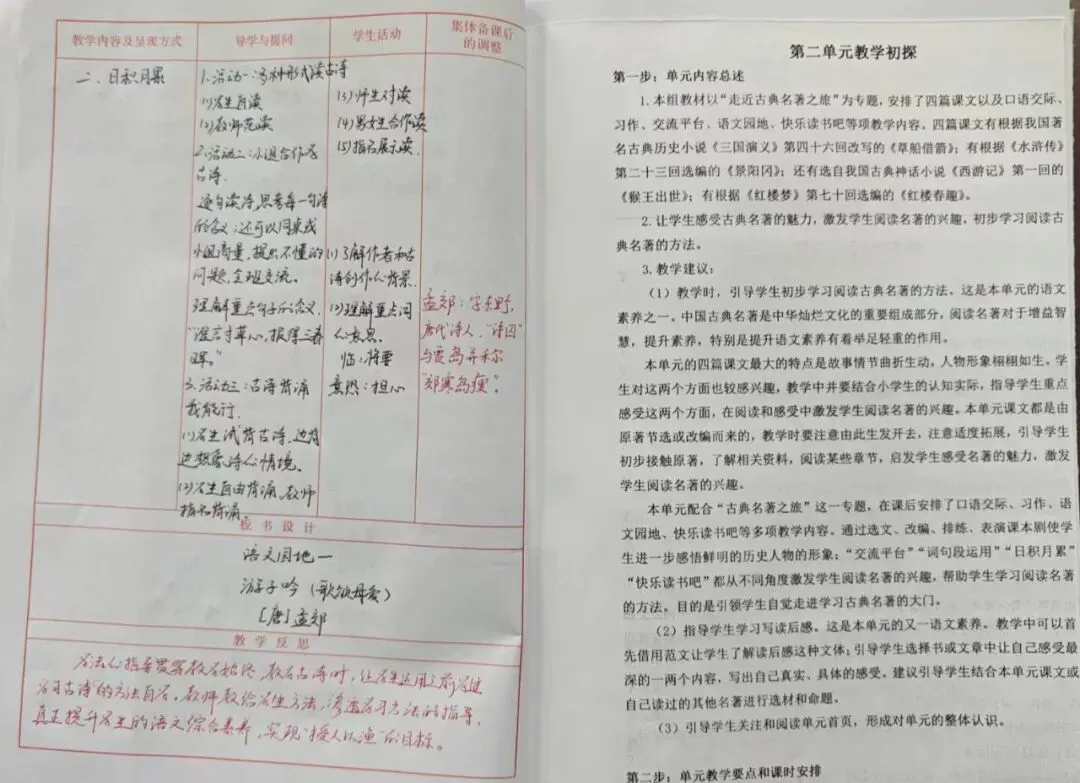 教学内容及呈现方式
导学与提问
学生活动
集体备课后
的调整
二、日积月累
1.活动一:多种形式读古诗
(1)学生自读
(2)教师范读
2.活动二:小组合作学
古诗.
逐句读诗,思考每一句诗
的含义;还可以同桌或
小组商量,提出不懂的
问题,全班交流。
理解重点句子的含义.
“谁言寸草心,报得三春
晖。”
3.活动三:古诗背诵
我能行.
(1)学生试背古诗,边背
边想象诗的情境、
(2)学生自由背诵,教师
指名背诵。
(3)师生对读
(4)男女生合作读
(5)指名展示读.
(1)了解作者和古
诗创作的背景.
(2)理解重点词
的意思.
临:将要
意恐:担心
孟郊:字东野,
唐代诗人.“诗囚”
与贾岛并称
“郊寒岛瘦”。
板书设计
语文园地一
游子吟(歌颂母爱)
[唐]孟郊
教学反思
学法的指导贯穿教学始终,教学古诗时,让学生运用之前学过
学习古诗的方法自学。教师教给学生方法,渗透学习方法的指导,
真正提升学生的语文综合素养,实现“授人以渔”的目标。
第二单元教学初探
第一步:单元内容总述
1.本组教材以“走近古典名著之旅”为专题,安排了四篇课文以及口语交际、
习作、交流平台、语文园地、快乐读书吧等项教学内容。四篇课文有根据我国著
名古典历史小说《三国演义》第四十六回改写的《草船借箭》;有根据《水浒传》
第二十三回选编的《景阳冈》;还有选自我国古典神话小说《西游记》第一回的
《猴王出世》;有根据《红楼梦》第七十回选编的《红楼春趣》。
2.让学生感受古典名著的魅力,激发学生阅读名著的兴趣,初步学习阅读古
典名著的方法。
3.教学建议:
(1)教学时,引导学生初步学习阅读古典名著的方法。这是本单元的语文
素养之一。中国古典名著是中华灿烂文化的重要组成部分,阅读名著对于增益智
慧,提升素养,特别是提升语文素养有着举足轻重的作用。
本单元的四篇课文最大的特点是故事情节曲折生动,人物形象栩栩如生。学
生对这两个方面也较感兴趣,教学中并要结合小学生的认知实际,指导学生重点
感受这两个方面,在阅读和感受中激发学生阅读名著的兴趣。本单元课文都是由
原著节选或改编而来的,教学时要注意由此生发开去,注意适度拓展,引导学生
初步接触原著,了解相关资料,阅读某些章节,启发学生感受名著的魅力,激发
学生阅读名著的兴趣。
本单元配合“古典名著之旅”这一专题,在课后安排了口语交际、习作、语
文园地、快乐读书吧等多项教学内容。通过选文、改编、排练、表演课本剧使学
生进一步感悟鲜明的历史人物的形象;“交流平台”“词句段运用”“日积月累”
“快乐读书吧”都从不同角度激发学生阅读名著的兴趣,帮助学生学习阅读名著
的方法。目的是引领学生自觉走进学习古典名著的大门。
(2)指导学生学习写读后感。这是本单元的又一语文素养。教学中可以首
先借用范文让学生了解读后感这种文体;引导学生选择书或文章中让自己感受最
深的一两个内容,写出自己真实、具体的感受。建议引导学生结合本单元课文或
自己读过的其他名著进行选材和命题。
(3)引导学生关注和阅读单元首页,形成对单元的整体认识。
第二步:单元教学要点和课时安排